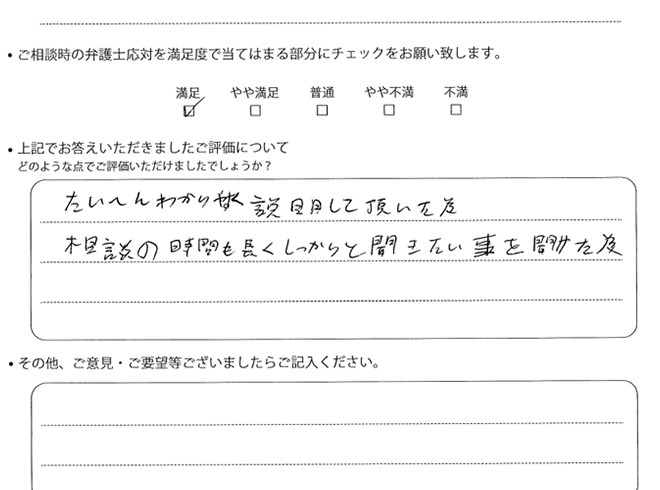 • ご相談時の弁護士応対を満足度で当てはまる部分にチェックをお願い致します。
満足 やや満足 普通 やや不満 不満
• 上記でお答えいただきましたご評価について
どのような点でご評価いただけましたでしょうか？
たいへんわかり 説明して頂いた点
相談の時間も長くしっかりと聞きたい事を聞けた点
• その他、ご意見・ご要望等ございましたらご記入ください。